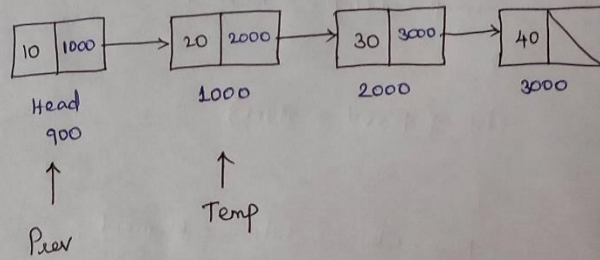 10 1000 20 2000 30 3000 40
Head 1000 2000 3000
900
Temp
Prev